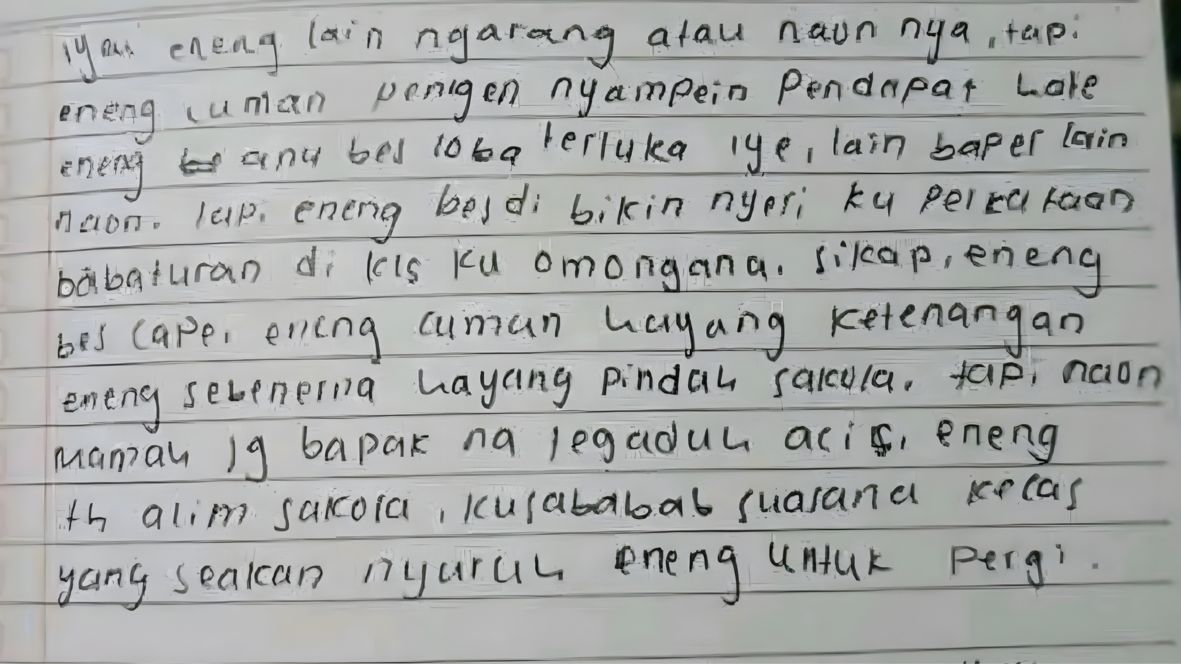 iyeu eneng lain ngarang atau naon nya, tapi
eneng cuman pengen nyampein Pendapat hate
eneng anu bes loba terluka iye, lain baper lain
naon. tapi eneng bes di bikin nyeri ku perkataan
babaturan di kls ku omongana. sikap, eneng
bes cape, eneng cuman hayang ketenangan
eneng sebenerna hayang pindah sakola. tapi naon
mamah jg bapak na tegaduh acis, eneng
th alim sakola, kusababab suasana kelas
yang seakan nyuruh eneng untuk pergi.